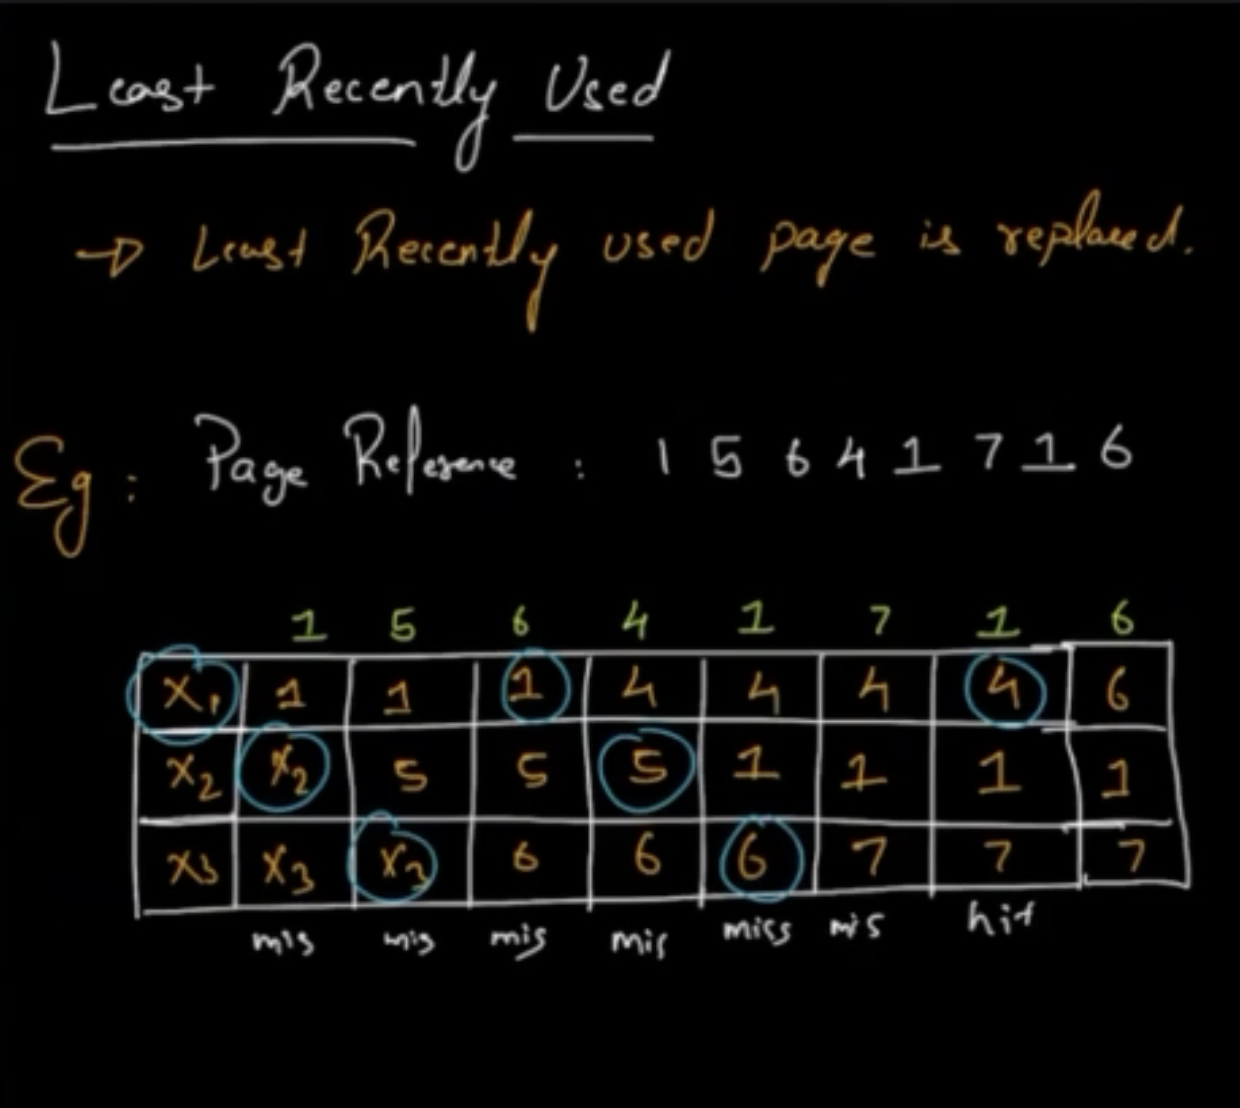 Least Recently Used
→ Least Recently used page is replaced.
Eg: Page Reference : 1 5 6 4 1 7 1 6
1 5 6 4 1 7 1 6
X1 1 1 1 4 4 4 4 6
X2 X2 5 5 5 1 1 1 1
X3 X3 X3 6 6 6 7 7 7
mis mis mis mis miss mis hit